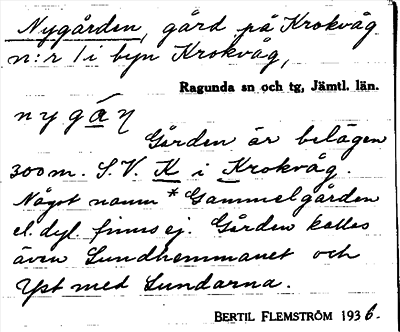 Nygården, gård på Krokvåg
n:r 1 i byn Krokvåg,
Ragunda sn och tg, Jämtl. län.
nygáņ
Gården är belägen
300 m. S.V. K i Krokvåg.
Något namn *Gammelgården
el. dyl. finns ej. Gården kallas
även Lundhemmanet och
Yst med Lundarna.
BERTIL FLEMSTRÖM 1936.